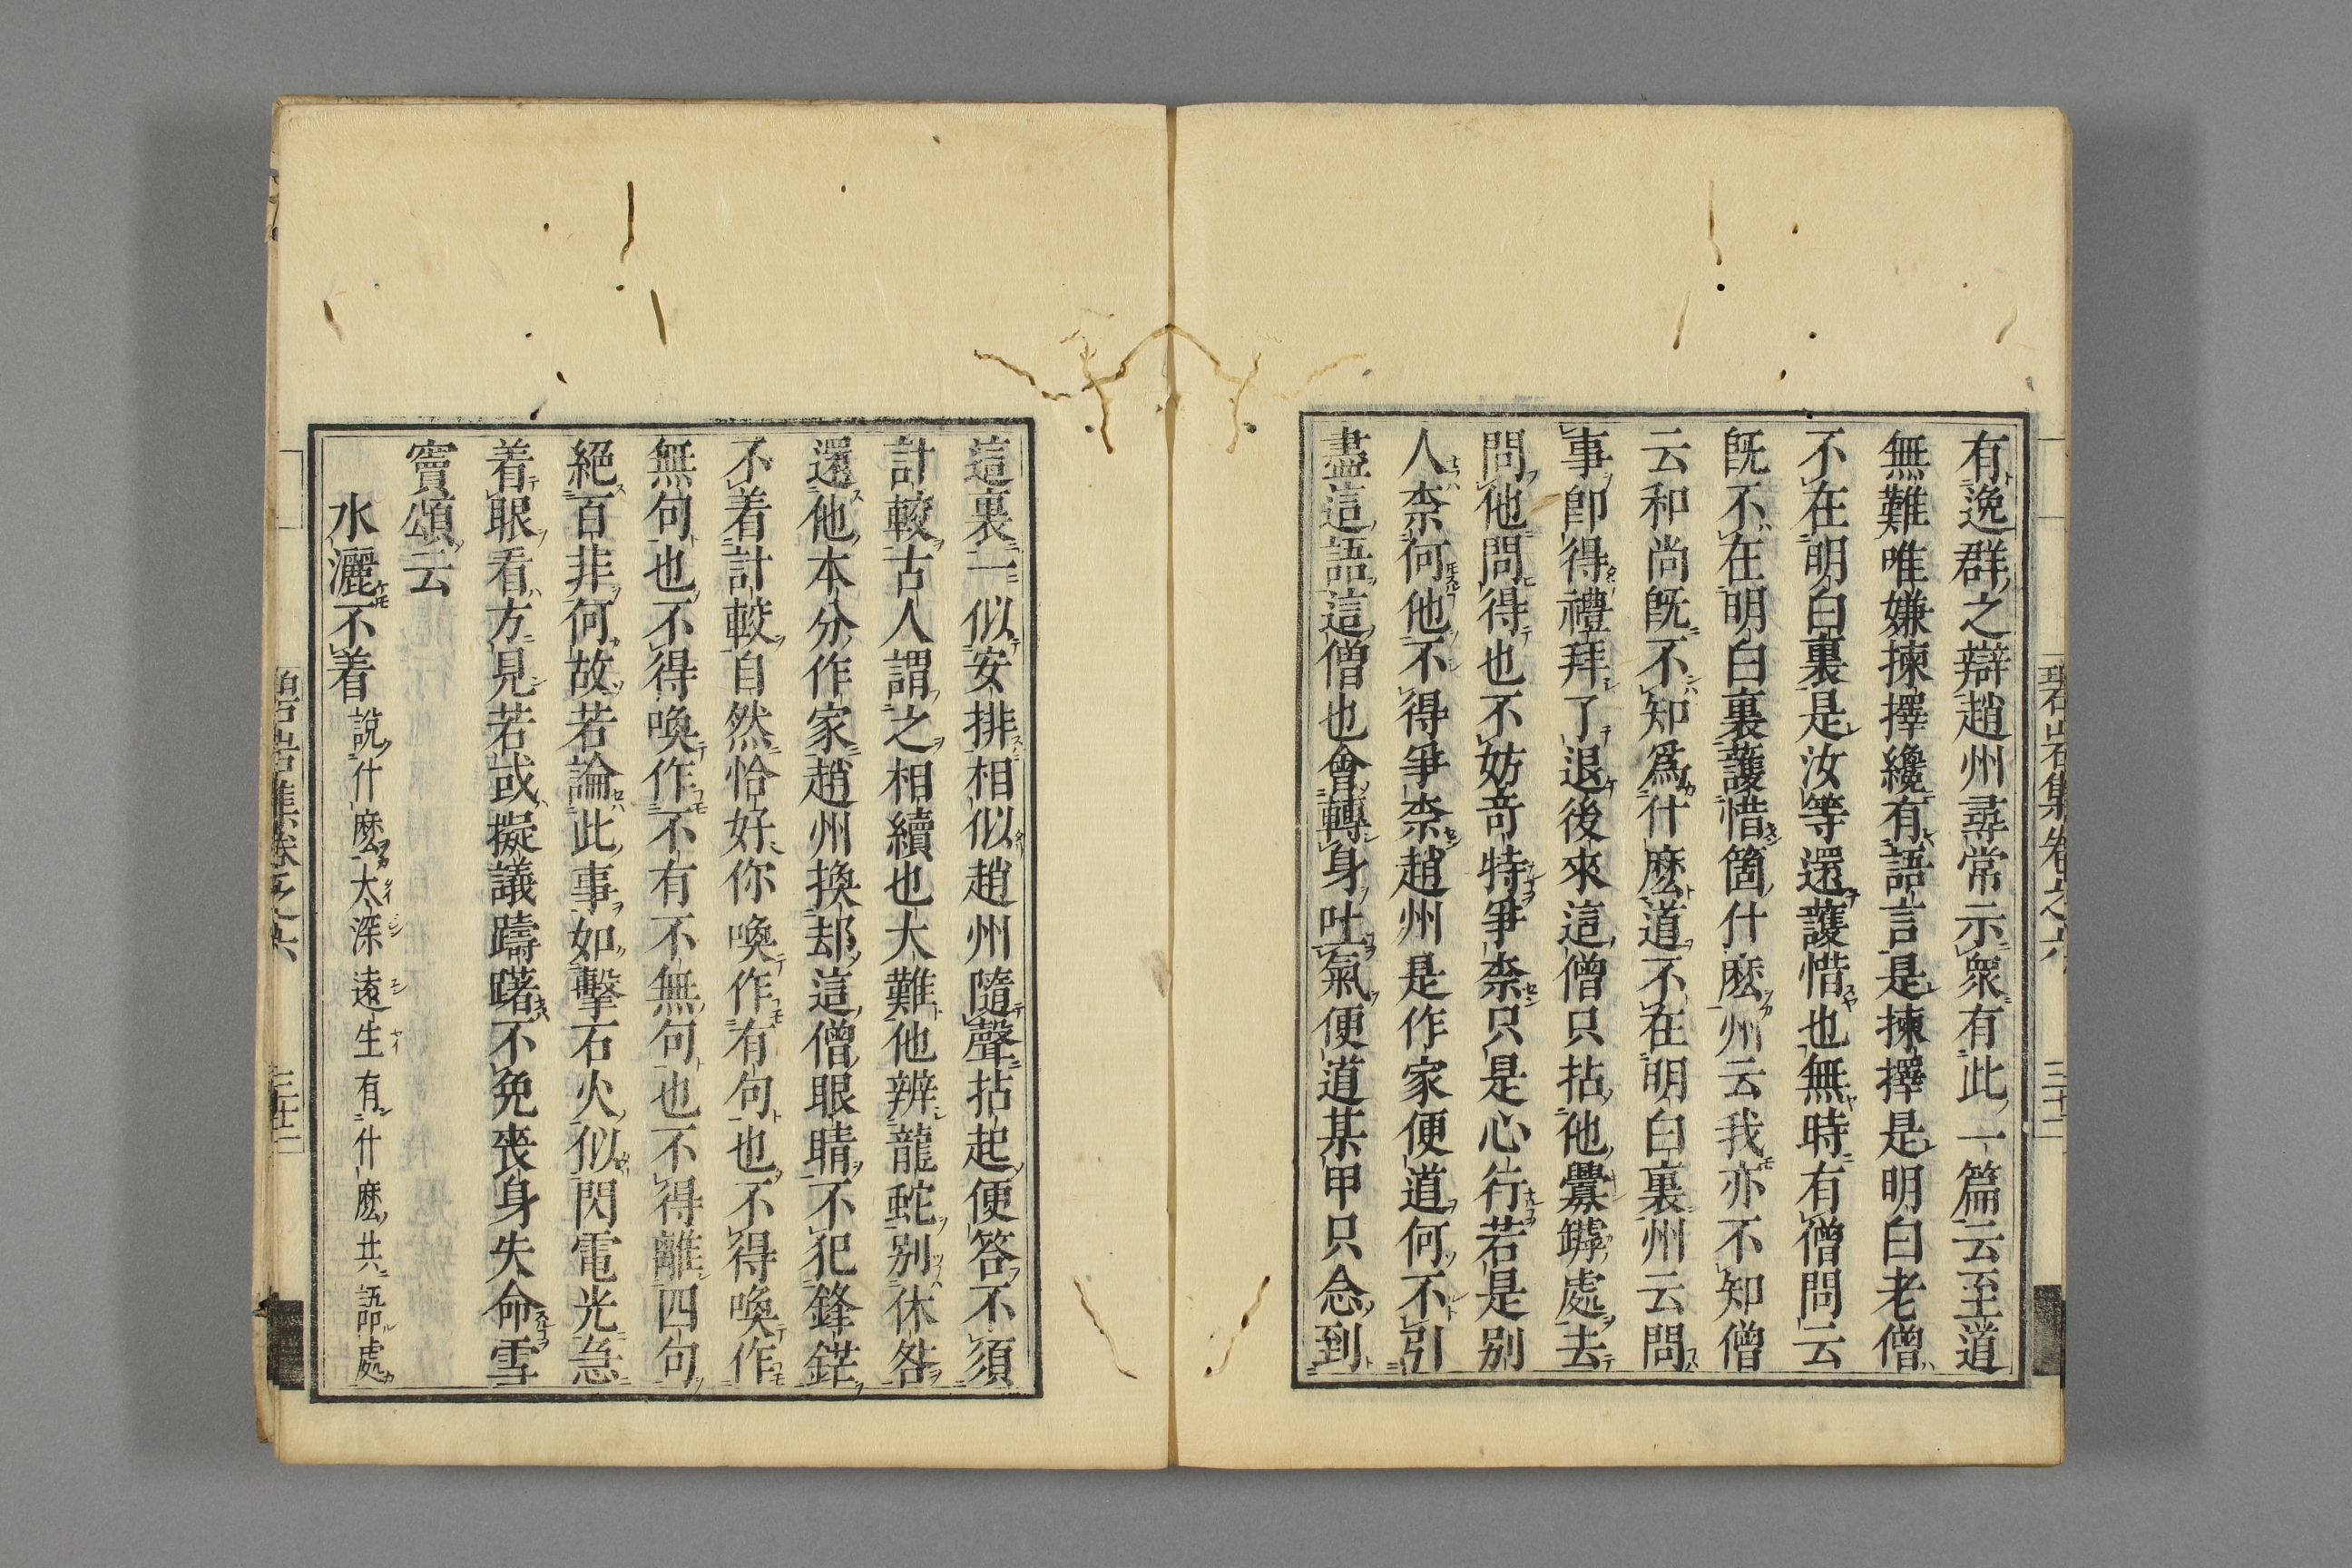 有逸群之辯趙州尋常示衆有此一篇云至道
無難唯嫌揀擇纔有語言是揀擇是明白老僧
不在明白裏是汝等還護惜也無時有僧問云
既不在明白裏護惜箇什麼州云我亦不知僧
云和尚既不知爲什麼道不在明白裏州云問
事卽得禮拜了退後來這僧只拈他釁罅處去
問他問得也不妨奇特爭柰只是心行若是別
人柰何他不得爭柰趙州是作家便道何不引
盡這語這僧也會轉身吐氣便道某甲只念到
碧岩集卷之六 三十二
這裏一似安排相似趙州隨聲拈起便答不須
計較古人謂之相續也大難他辨龍蛇別休咎
還他本分作家趙州換却這僧眼睛不犯鋒鋩
不着計較自然恰好你喚作有句也不得喚作
無句也不得喚作不有不無句也不得離四句
絕百非何故若論此事如擊石火似閃電光急
着眼看方見若或擬議躊躇不免喪身失命雪
竇頌云
水灑不着說什麼太深遠生有什麼共語處
碧岩集卷之六